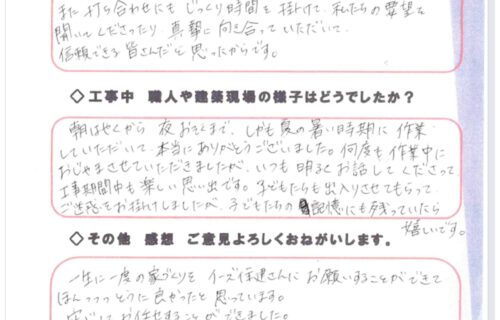 また打ち合わせにもじっくり時間を掛けて、私たちの要望を
聞いてくださったり、真摯に向き合っていただいて、
信頼できる皆さんだと思ったからです。
◇工事中 職人や建築現場の様子はどうでしたか？
朝はやくから夜おそくまで、しかも夏の暑い時期に作業
していただいて、本当にありがとうございました。何度も作業中に
おじゃまさせていただきましたが、いつも明るくお話してくださって、
工事期間中も楽しい思い出です。子どもたちも出入りさせてもらって、
ご迷惑をお掛けしましたが、子どもたちの記憶にも残っていたら
嬉しいです。
◇その他 感想 ご意見よろしくおねがいします。
一生に一度の家づくりをイーズ住建さんにお願いすることができて
ほんっっっとうに良かったと思っています。
安心してお任せすることができました。